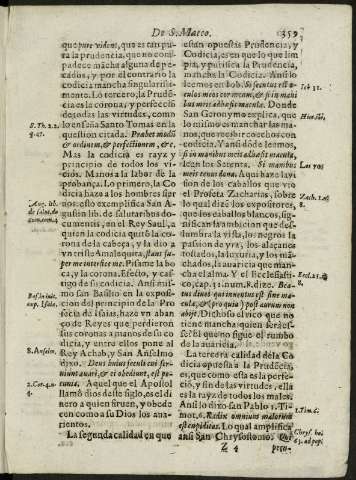 De S. Marco.
359
que pure videns, que es tan pu-
ra la prudencia, que no com-
padece mancha alguna de pe-
cados, y por el contrario la
codicia mancha singularissi-
mente. Lo tercero, la Prudē-
cia es la corona, y perfecciō
de todas las virtudes, como
S. Th. 2.2.
lo enseña Santo Tomas en la
question citada. Præbet modū
& ordinem, & perfectionem, &c.
Mas la codicia es rayz y
principio de todos los vi-
cios. Manos a la labor de la
probança. Lo primero, la Co-
dicia haze a los hombres sur-
nos: esto exemplifica San Au-
gustin lib. de salutaribus do-
cumentis, en el Rey Saul, a
quien la codicia quitò la coro-
na de la cabeça, y la dio a
vn triste Amalequita,
per me interfice me. Pisame la bo-
ca, y la corona. Efeto, y cas-
tigo de su codicia. Ansi mis-
mo san Basilio en la exposi-
cion del principio de la Pro-
fecia de Isaias, haze vn aban-
co de Reyes que perdieron
sus coronas a manos de su co-
dicia, y entre ellos pone al
Rey Achab, y San Anselmo
8. Anselm.
dixo. Deus huius seculi cui ser-
miunt auari, & ei obediunt, est pe-
cunia. Aquel que el Apostol
2. Cor. 4. n.
4.
llamò dios deste siglo, es el di-
nero a quien siruen, y obede-
cen como a su Dios los aua-
rientos.
La segunda calidad en que
estan opuestas Prudencia, y
Codicia, es en que lo que lim-
pia, y purifica la Prudencia,
mancha la Codicia. Ansi lo
leemos en Iob. Si secutus est o-
Iob 31.
culus meos cor meum, & si in mani
bus meis adhæsit macula. Donde
San Geronymo explica, que
Hieroni.
son las inmundicias de las ma-
nos, que reciben cochos con
codicia. Y donde leemos,
si in manibus meis adhæsit macula,
leen los Setenta. Si manibus
Las 70
meis tenui dona. Aqui haze la vi-
sion de los caballos que vio
el Profeta Zacharias, sobre
Zach. 1. n.
8.
lo qual dize los expositores,
que los caballos blancos, sig-
nifican la ambicion que des-
lumbra la vista, los negros la
passion de yra, los alaçanos
tostados, la luxuria, y los ma-
chados, la auaricia que man-
cha el alma. Y el Ecclesiasti-
Eccl. 31. n.
8.
co, cap. 31. num. 8. dize. Bea-
tus diues qui inuentus est sine ma-
cula, & qui post aurum non
abijt. Dichoso el rico que no
tiene mancha quien serà es-
se? El que no sigue el rumbo
de la auaricia.
La tercera calidad de la Co
dicia opuesta a la Prudēcia,
es, que como essa es la perfe-
ciō, y fin de las virtudes, ella
es la rayz de todo los males.
Ansi lo dixo san Pablo 1. Ti-
1. Tim. 6.
mot. Radix omnium malorum
est cupiditas. Lo qual amplifica
ansi San Chrysostomo.
Z 4